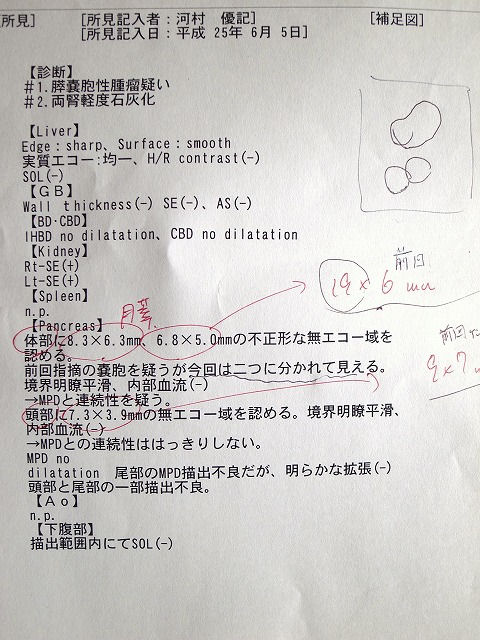 [所見] [所見記入者：河村 優記] [補足図]
[所見記入日：平成 25年 6月 5日]
【診断】
＃1.膵嚢胞性腫瘤疑い
＃2.両腎軽度石灰化
【Liver】
Edge：sharp、Surface：smooth
実質エコー：均一、H/R contrast(-)
SOL(-)
【ＧＢ】
Wall thickness(-) SE(-)、AS(-)
【BD・CBD】
IHBD no dilatation、CBD no dilatation
【Kidney】
Rt-SE(+)
Lt-SE(+)
前回
19×6 mm
【Spleen】
n.p.
【Pancreas】
膵
体部に8.3×6.3mm、6.8×5.0mmの不正形な無エコー域を
認める。
前回
9×7 m
前回指摘の嚢胞を疑うが今回は二つに分かれて見える。
境界明瞭平滑、内部血流(-)
→MPDと連続性を疑う。
頭部に7.3×3.9mmの無エコー域を認める。境界明瞭平滑、
内部血流(-)
→MPDとの連続性ははっきりしない。
MPD no
dilatation 尾部のMPD描出不良だが、明らかな拡張(-)
頭部と尾部の一部描出不良。
【Ａｏ】
n.p.
【下腹部】
描出範囲内にてSOL(-)